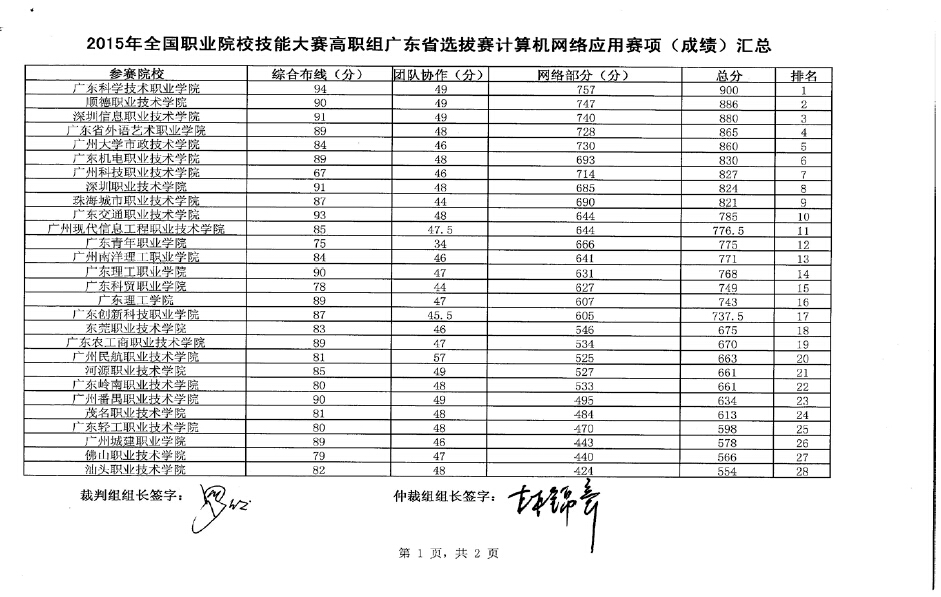 2015年全国职业院校技能大赛高职组广东省选拔赛计算机网络应用赛项（成绩）汇总
参赛院校 综合布线（分） 团队协作（分） 网络部分（分） 总分 排名
广东科学技术职业学院 94 49 757 900 1
顺德职业技术学院 90 49 747 886 2
深圳信息职业技术学院 91 49 740 880 3
广东省外语艺术职业学院 89 48 728 865 4
广州大学市政技术学院 84 46 730 860 5
广东机电职业技术学院 89 48 693 830 6
广州科技职业技术学院 67 46 714 827 7
深圳职业技术学院 91 48 685 824 8
珠海城市职业技术学院 87 44 690 821 9
广东交通职业技术学院 93 48 644 785 10
广州现代信息工程职业技术学院 85 47.5 644 776.5 11
广东青年职业学院 75 34 666 775 12
广州南洋理工职业学院 84 46 641 771 13
广东理工职业学院 90 47 631 768 14
广东科贸职业学院 78 44 627 749 15
广东理工学院 89 47 607 743 16
广东创新科技职业学院 87 45.5 605 737.5 17
东莞职业技术学院 83 46 546 675 18
广东农工商职业技术学院 89 47 534 670 19
广州民航职业技术学院 81 57 525 663 20
河源职业技术学院 85 49 527 661 21
广东岭南职业技术学院 80 48 533 661 22
广州番禺职业技术学院 90 49 495 634 23
茂名职业技术学院 81 48 484 613 24
广东轻工职业技术学院 80 48 470 598 25
广州城建职业学院 89 46 443 578 26
佛山职业技术学院 79 47 440 566 27
汕头职业技术学院 82 48 424 554 28
裁判组组长签字： 仲裁组组长签字：
第 1 页，共 2 页